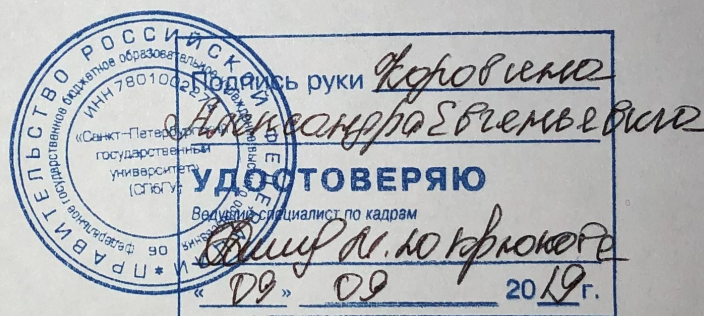 ПРАВИТЕЛЬСТВО РОССИЙСКОЙ ФЕДЕРАЦИИ *
Федеральное государственное бюджетное образовательное учреждение высшего
ИНН 7801002274
«Санкт-Петербургский
государственный
университет»
(СПбГУ)
06
Подпись руки Коровина
Александра Евгеньевича
УДОСТОВЕРЯЮ
Ведущий специалист по кадрам
« 09 » 09 2019 г.